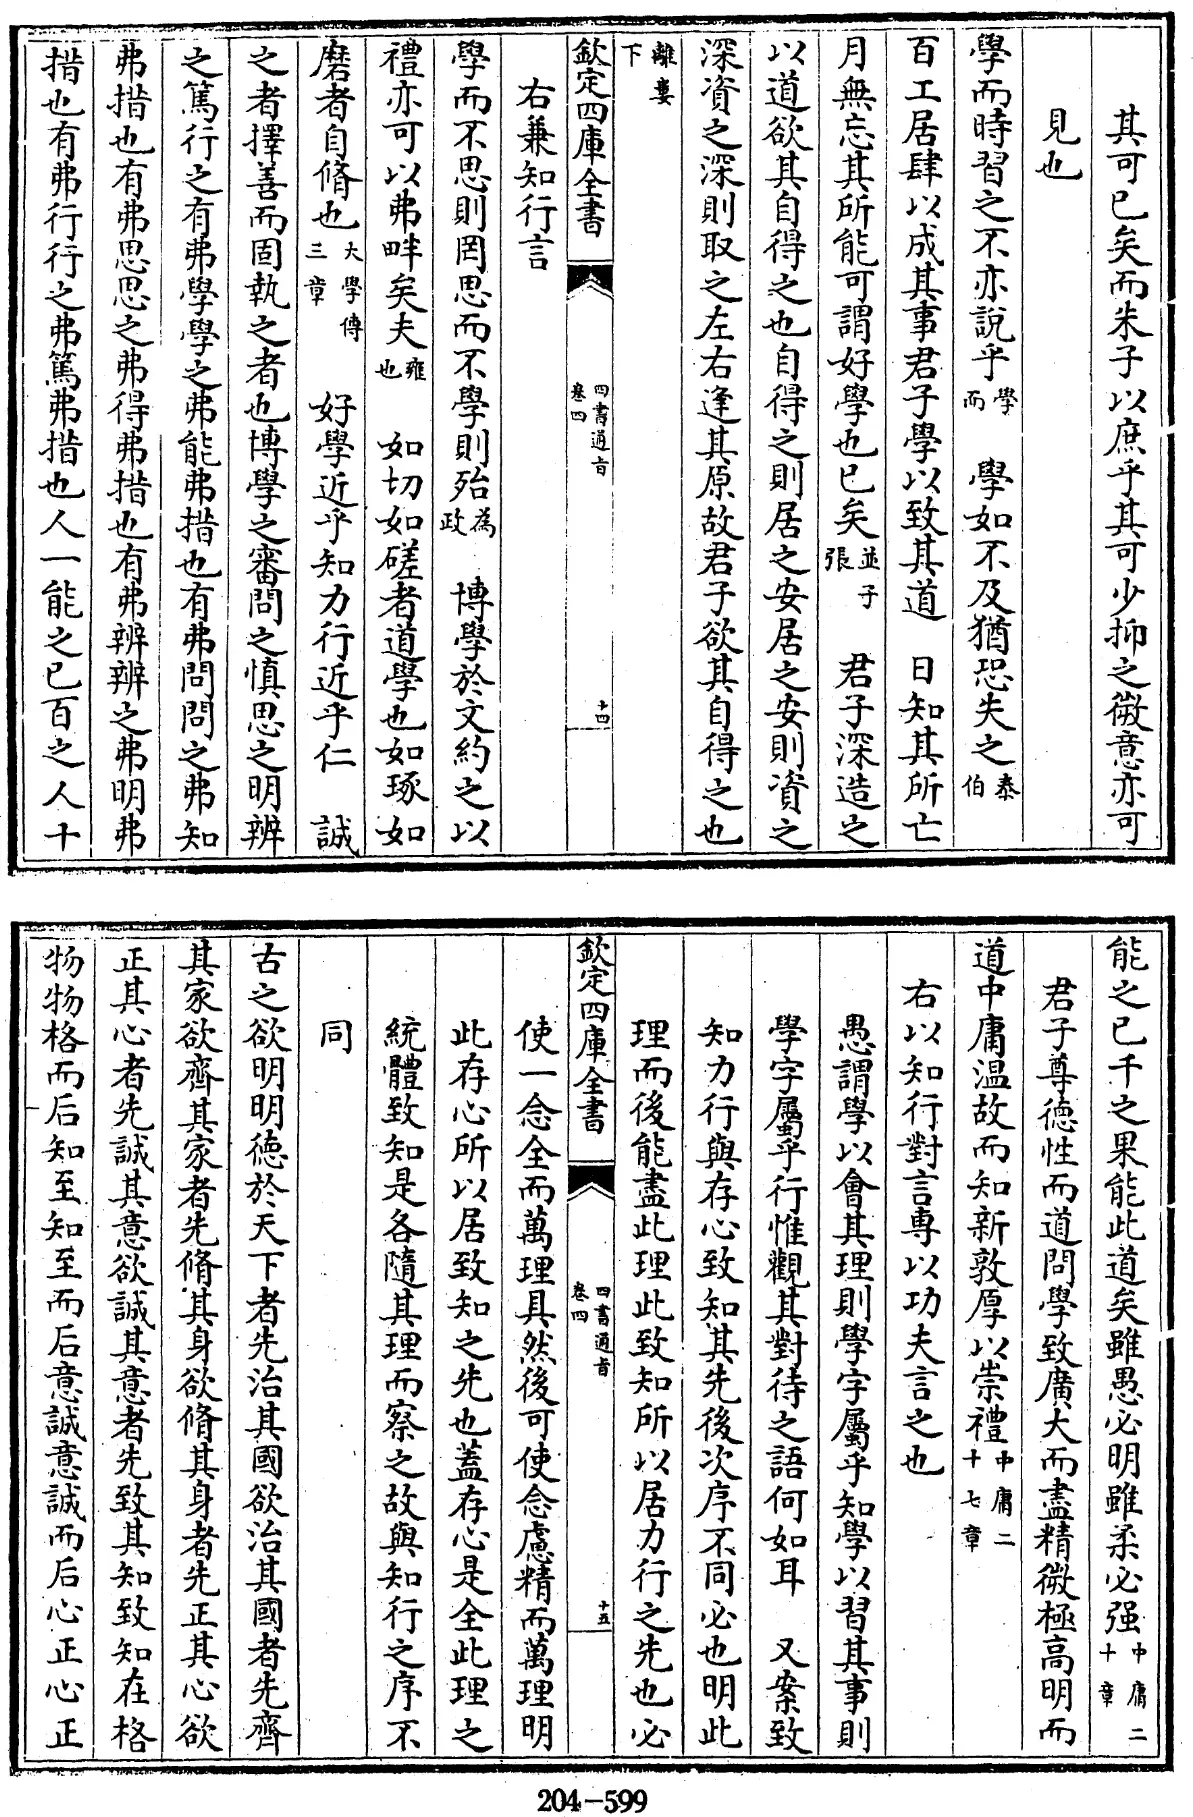 其可已矣而朱子以庶乎其可少抑之微意亦可
見也
學而時習之不亦說乎學而　學如不及猶恐失之泰伯
百工居肆以成其事君子學以致其道　日知其所亡
月無忘其所能可謂好學也已矣並子張　君子深造之
以道欲其自得之也自得之則居之安居之安則資之
深資之深則取之左右逢其原故君子欲其自得之也
離婁下
欽定四庫全書　四書通旨卷四　十四
右兼知行言
學而不思則罔思而不學則殆為政　博學於文約之以
禮亦可以弗畔矣夫雍也　如切如磋者道學也如琢如
磨者自脩也大學傳三章　好學近乎知力行近乎仁　誠
之者擇善而固執之者也博學之審問之慎思之明辨
之篤行之有弗學學之弗能弗措也有弗問問之弗知
弗措也有弗思思之弗得弗措也有弗辨辨之弗明弗
措也有弗行行之弗篤弗措也人一能之已百之人十
能之已千之果能此道矣雖愚必明雖柔必强中庸二十章
君子尊德性而道問學致廣大而盡精微極高明而
道中庸温故而知新敦厚以崇禮中庸二十七章
右以知行對言專以功夫言之也
愚謂學以會其理則學字屬乎知學以習其事則
學字屬乎行惟觀其對待之語何如耳　又案致
知力行與存心致知其先後次序不同必也明此
理而後能盡此理此致知所以居力行之先也必
欽定四庫全書　四書通旨卷四　十五
使一念全而萬理具然後可使念慮精而萬理明
此存心所以居致知之先也蓋存心是全此理之
統體致知是各隨其理而察之故與知行之序不
同
古之欲明明德於天下者先治其國欲治其國者先齊
其家欲齊其家者先脩其身欲脩其身者先正其心欲
正其心者先誠其意欲誠其意者先致其知致知在格
物物格而后知至知至而后意誠意誠而后心正心正
204-599